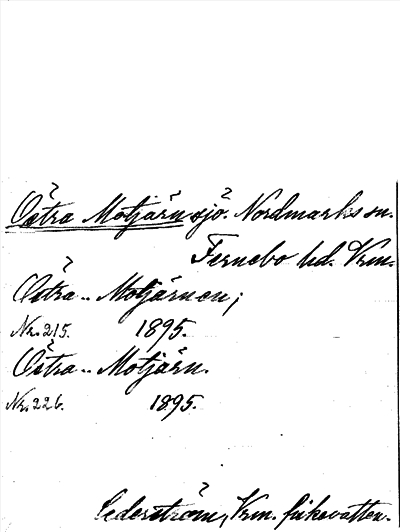 Östra Motjärn sjö. Nordmarks sn.
Fernebo hd. Vrm.
Östra.. Motjärnen;
Nr. 215. 1895.
Östra.. Motjärn.
Nr. 226. 1895.
Cederström, Vrm. fiskevatten.